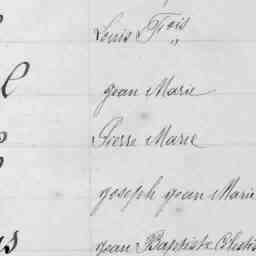 Louis Fçois
"
Jean Marie
Pierre Marie
Joseph Jean Marie
us Jean Baptiste